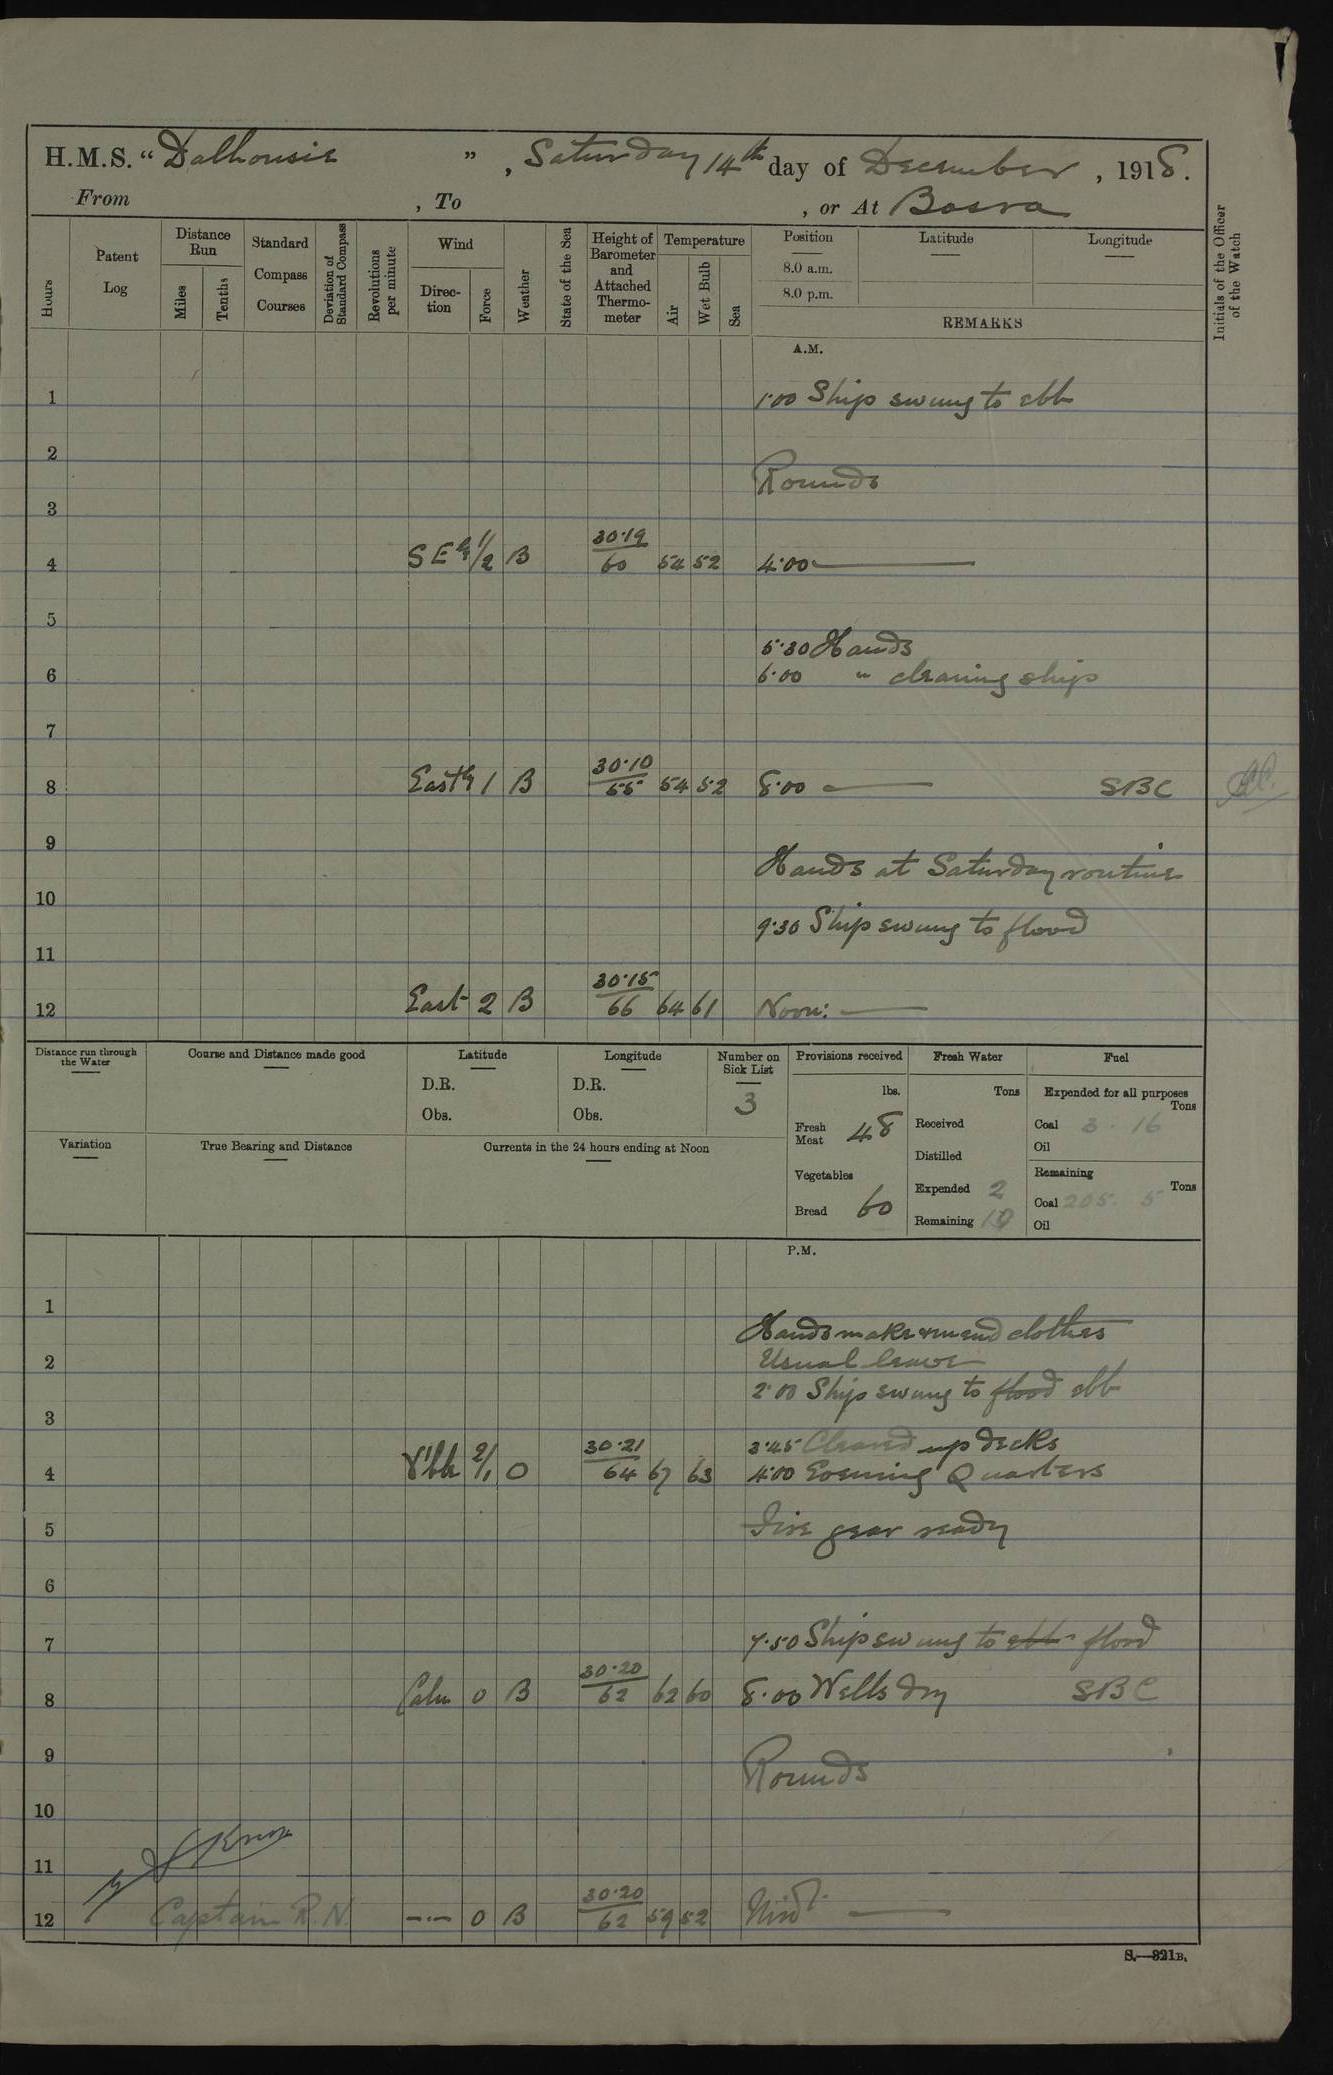 H.M.S. “Dalhousie”, Saturday 14th day of December, 1918.
From , To , or At Basra
Hours
Patent Log
Distance Run
Miles
Tenths
Standard Compass Courses
Deviation of Standard Compass
Revolutions per minute
Wind
Direction
Force
Weather
State of the Sea
Height of Barometer and Attached Thermometer
Temperature
Air
Wet Bulb
Sea
Position
8.0 a.m.
8.0 p.m.
Latitude
Longitude
REMARKS
Initials of the Officer of the Watch
A.M.
1 1.00 Ship swung to ebb
2
Rounds
3
4 SEly 1/2 B 30.19/60 54 52 4.00
5
5.30 Hands
6 6.00 " cleaning ship
7
8 Eastly 1 B 30.10/55 54 52 8.00 SBC
9
Hands at Saturday routine
10
9.30 Ship swung to flood
11
12 East 2 B 30.15/66 64 61 Noon:
Distance run through the Water
Course and Distance made good
Latitude
D.R.
Obs.
Longitude
D.R.
Obs.
Number on Sick List
3
Provisions received
lbs.
Fresh Meat 48
Vegetables
Bread 60
Fresh Water
Tons
Received
Distilled
Expended 2
Remaining 10
Fuel
Expended for all purposes
Tons
Coal 3.16
Oil
Remaining
Tons
Coal 205. 5
Oil
Variation
True Bearing and Distance
Currents in the 24 hours ending at Noon
P.M.
1
Hands make & mend clothes
2 Usual leave
2.00 Ship swung to flood ebb
3
3.45 Cleared up decks
4 V'ble 2/1 O 30.21/64 67 63 4.00 Evening Quarters
5 Fire gear ready
6
7 7.50 Ship swung to ebb flood
8 Calm 0 B 30.20/62 62 60 8.00 Wells dry SBC
9
Rounds
10
11
Knox
12 Captain R.N. 0 B 30.20/62 59 52 Midt.
S.—321B.